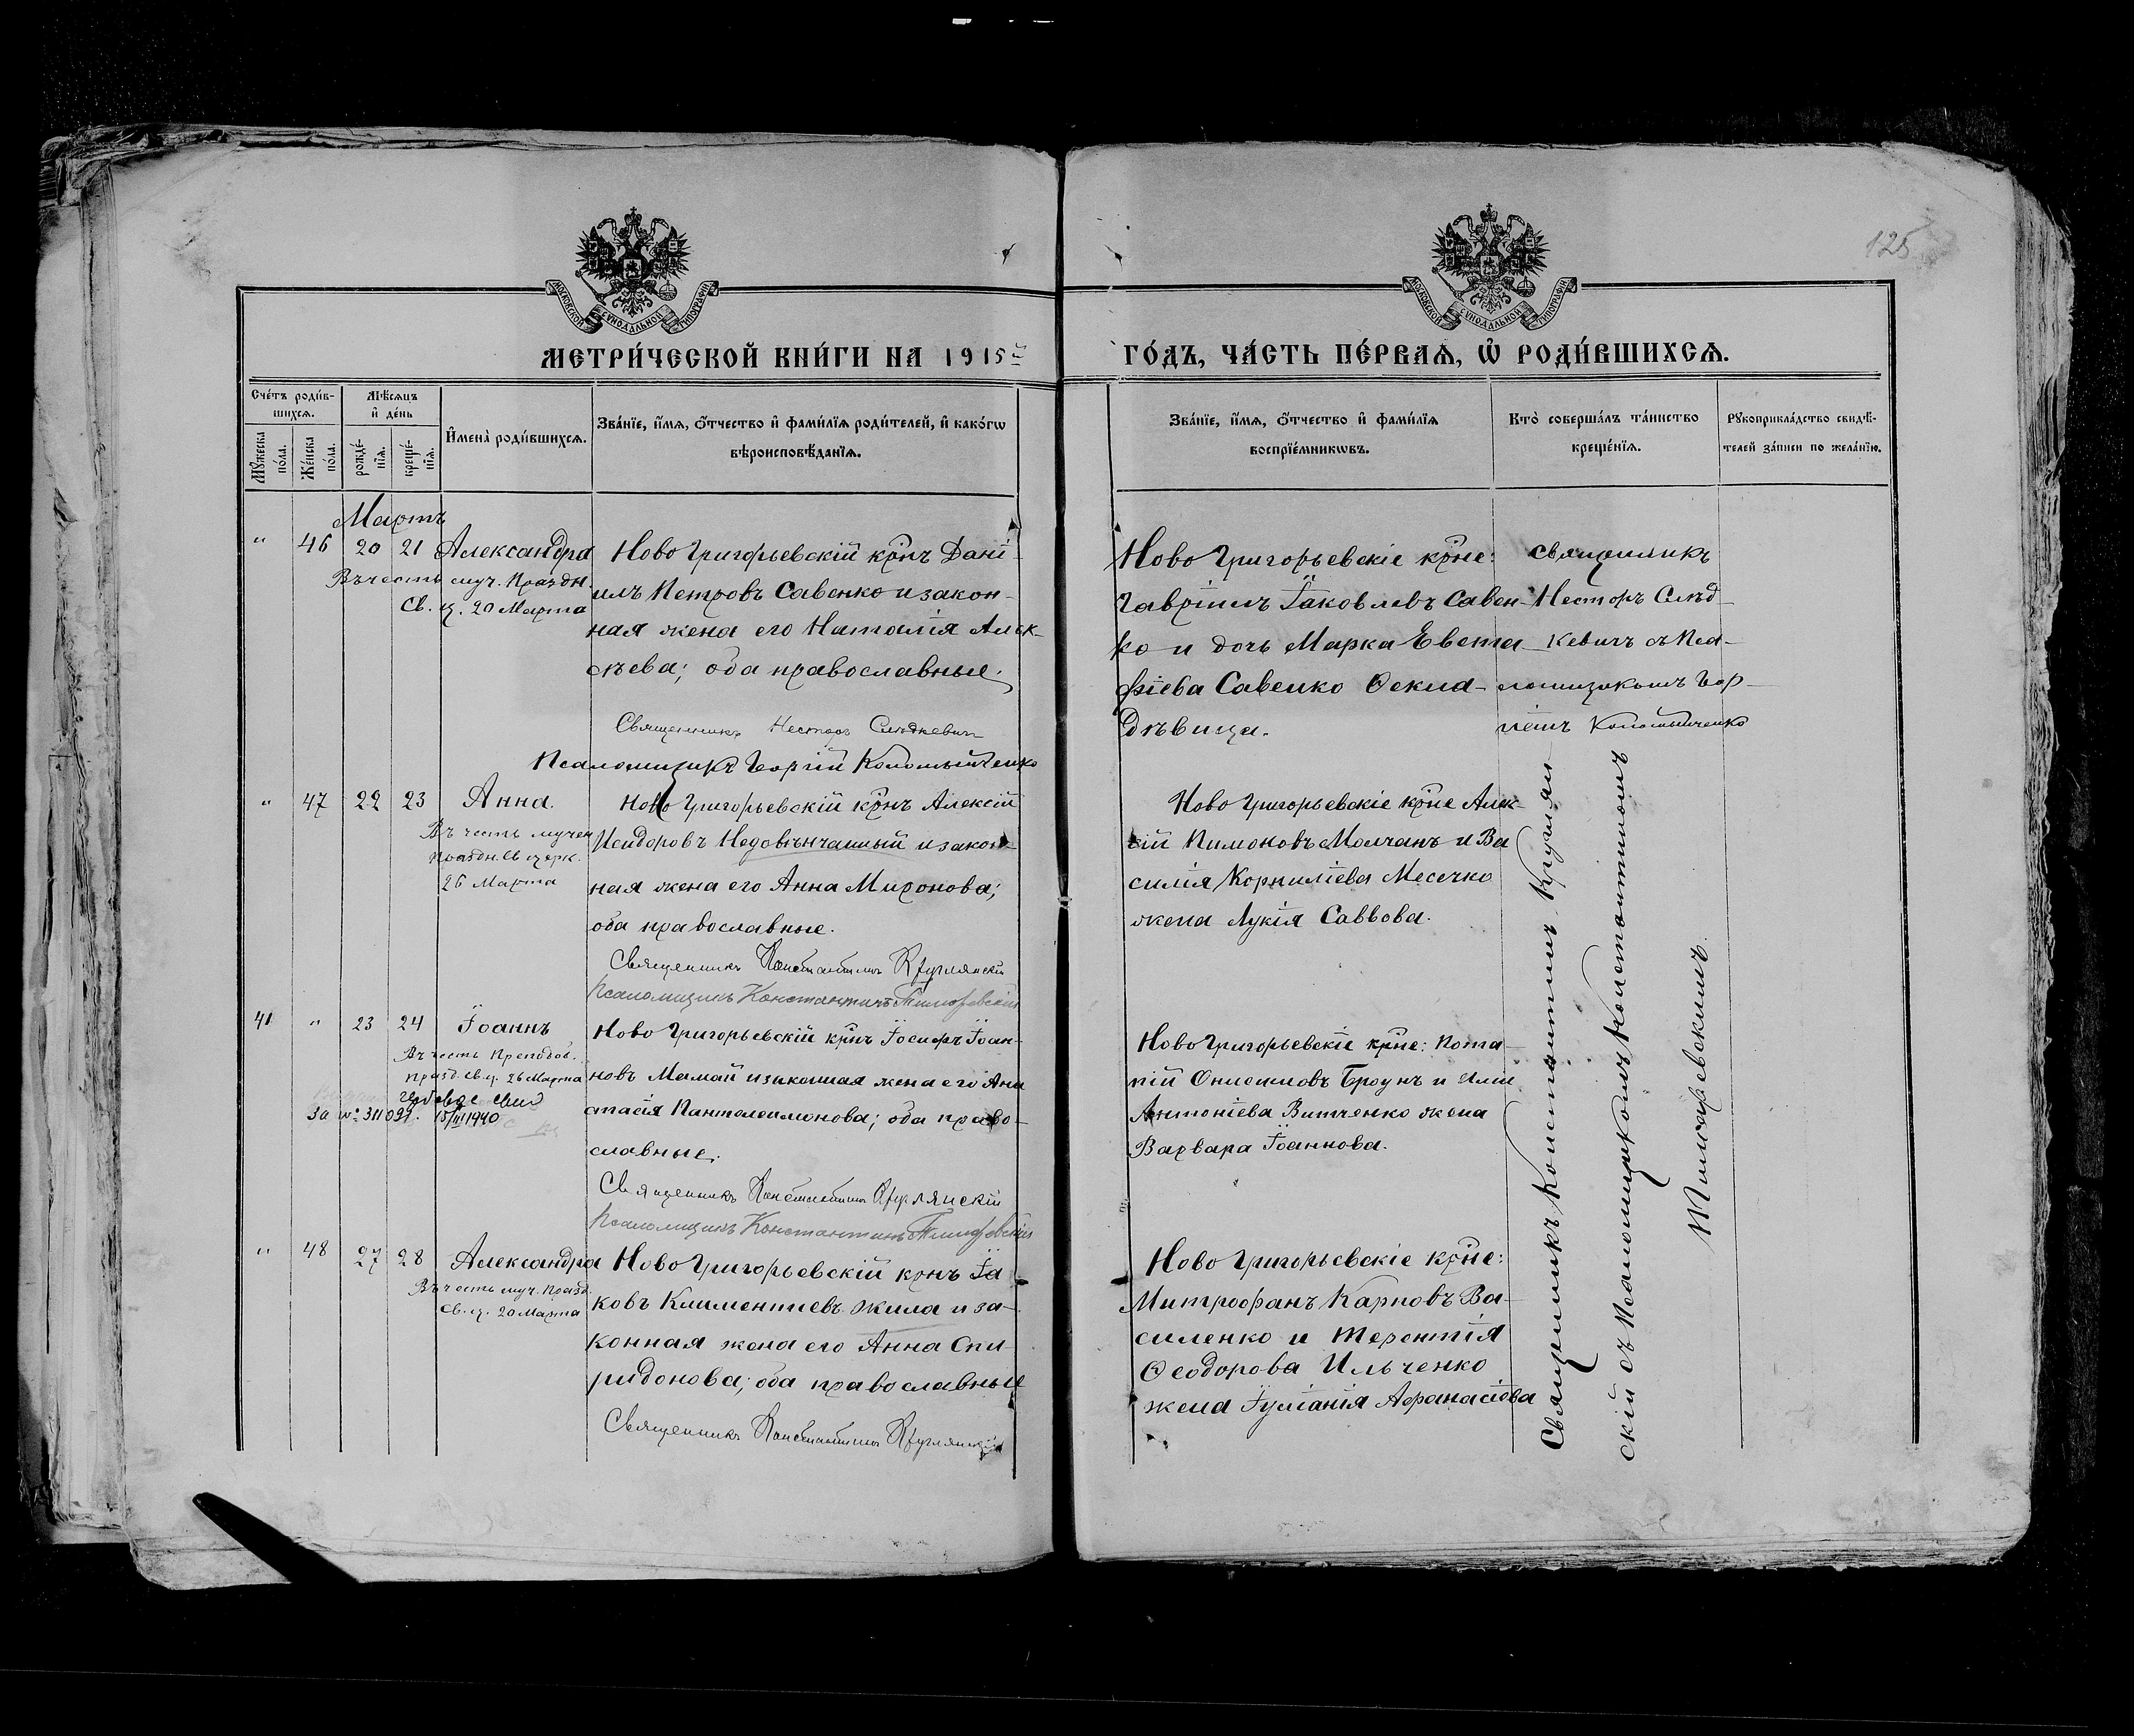 125
МОСКОВСКОЙ СѴНОДАЛЬНОЙ ТИПОГРАФІИ
МОСКОВСКОЙ СѴНОДАЛЬНОЙ ТИПОГРАФІИ
МЕТРИ́ЧЕСКОЙ КНИ́ГИ НА 1915й
ГО́ДЪ, ЧА́СТЬ ПЕ́РВАѦ, Ѡ҆ РОДИ́ВШИХСѦ.
Сче́тъ роди́в-
шихсѧ.
Мꙋ́жеска по́ла.
Же́нска по́ла.
Мѣ́сѧцъ
и҆ де́нь
рожде́-
нїѧ.
креще́-
нїѧ.
И҆мена̀ роди́вшихсѧ.
Зва́нїе, и҆́мѧ, ѻ҆́тчество и҆ фами́лїѧ роди́телей, и҆ како́гѡ
вѣроисповѣ́данїѧ.
Зва́нїе, и҆́мѧ, ѻ҆́тчество и҆ фами́лїѧ
воспрїе́мникѡвъ.
Кто̀ соверша́лъ та́инство
креще́нїѧ.
Рꙋкоприкла́дство свидѣ́-
телей за́писи по жела́нїю.
Мартъ
" 46 20 21 Александра
Въ честь муч. Праздн.
Св. ц. 20 Марта
Ново Григорьевскій крнъ Дані-
илъ Петровъ Савенко и закон-
ная жена его Наталія Алек-
сѣева; оба православные.
Священникъ Несторъ Слѣдкевич
Псаломщикъ Георгій Коломыйченко
Ново Григорьевскіе крне:
Гавріилъ Іаковлевъ Савен-
ко и дочь Марка Евста-
фіева Савенко Ѳекла-
дѣвица.
Священникъ
Несторъ Слѣд-
кевичъ съ Пса-
ломщикомъ Геор-
гіемъ Коломыйченко
" 47 22 23 Анна.
Въ честь мучен
праздн. св церк.
26 Марта
Ново Григорьевскій крнъ Алексій
Исидоровъ Недовѣнчанный и закон-
ная жена его Анна Миронова;
оба православные.
Священникъ Константинъ Круглянскій
Псаломщикъ Константинъ Тимофевскій
Ново Григорьевскіе крне Алек-
сій Пимоновъ Молчанъ и Ва
силія Корниліева Месечко
жена Лукія Саввова.
Священникъ Константинъ Круглян-
скій съ Псаломщикомъ Константиномъ
Тимофевскимъ.
41 " 23 24 Іоаннъ
Въ честь Преподоб.
празд. св. ц. 26 Марта
За № 311099. 15/III 1940
Ново Григорьевскій крнъ Іосифъ Іоан-
новъ Мамай и законная жена его Ана
стасія Панталеимонова; оба право-
славные.
Священникъ Константинъ Круглянскій
Псаломщикъ Константинъ Тимофевскій
Ново Григорьевскіе крне: Пота-
пій Онисимовъ Броунъ и Иліи
Антоніева Витченко жена
Варвара Іоаннова.
" 48 27 28 Александра
Въ честь муч. празд.
св. ц. 20 Марта
Ново Григорьевскій крнъ Іа-
ковъ Климентіевъ Жила и за-
конная жена его Анна Спи-
ридонова; оба православные
Священникъ Константинъ Круглянскій
Ново Григорьевскіе крне:
Митрофанъ Карповъ Ва-
силенко и Терентія
Ѳеодорова Ильченко
жена Іуліанія Афанасіева